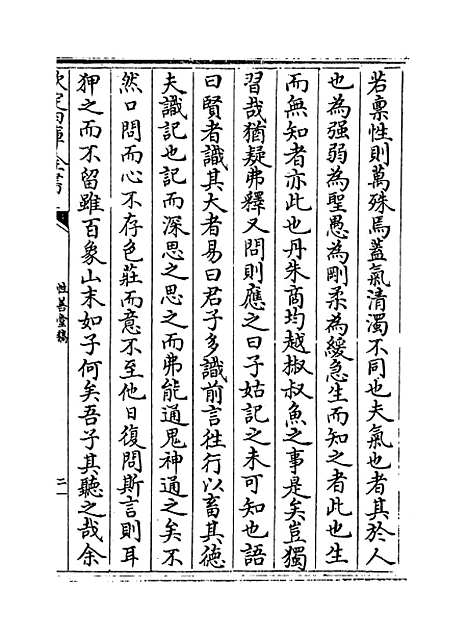 若禀性則萬殊焉蓋氣清濁不同也夫氣也者其於人
也為强弱為聖愚為剛柔為緩急生而知之者此也生
而無知者亦此也丹朱商均越椒叔魚之事是矣豈獨
習哉猶疑弗釋又問則應之曰子姑記之未可知也語
曰賢者識其大者易曰君子多識前言徃行以畜其德
夫識記也記而深思之思之而弗能通鬼神通之矣不
然口問而心不存色莊而意不至他日復問斯言則耳
狎之而不留雖百象山末如子何矣吾子其聽之哉余
欽定四庫全書
性善堂稿
二